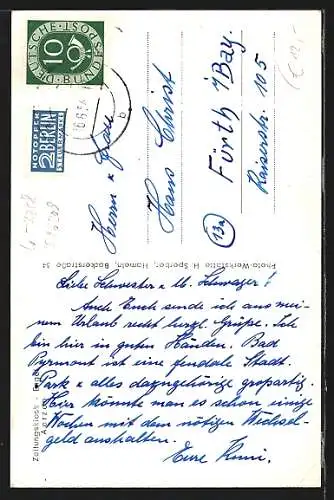 Liebe Schwester u. lb. Schwager!
Auch Euch sende ich aus mei-
nem Urlaub recht herzl. Grüße. Ich
bin hier in guten Händen. Bad
Pyrmont ist eine feudale Stadt.
Park u alles dazugehörige großartig.
Hier könnte man es schon einige
Wochen mit dem nötigen Wechsel-
geld aushalten.
Eure
Herrn u Frau
Hans Christ
Fürth i/Bay.
Kaiserstr. 105
13a
DEUTSCHE BUNDESPOST
10
NOTOPFER
2 BERLIN
STEUERMARKE
b
Photo-Werkstätte H. Sperber, Hameln, Bäckerstraße 34
Zeitungskiosk